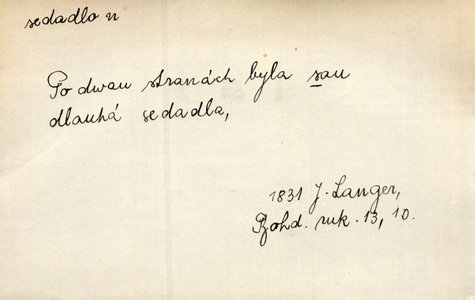 sedadlo n
Po dwau stranách byla sau
dlauhá sedadla,
1831 J. Langer,
Bohd. ruk. 13, 10.